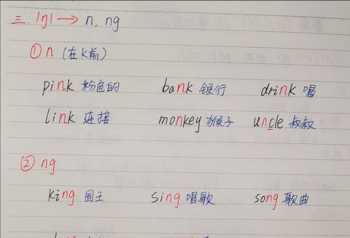 三. /ŋ/ → n, ng
① n (在k前)
pink 粉色的 bank 银行 drink 喝
link 连接 monkey 猴子 uncle 叔叔
② ng
king 国王 sing 唱歌 song 歌曲